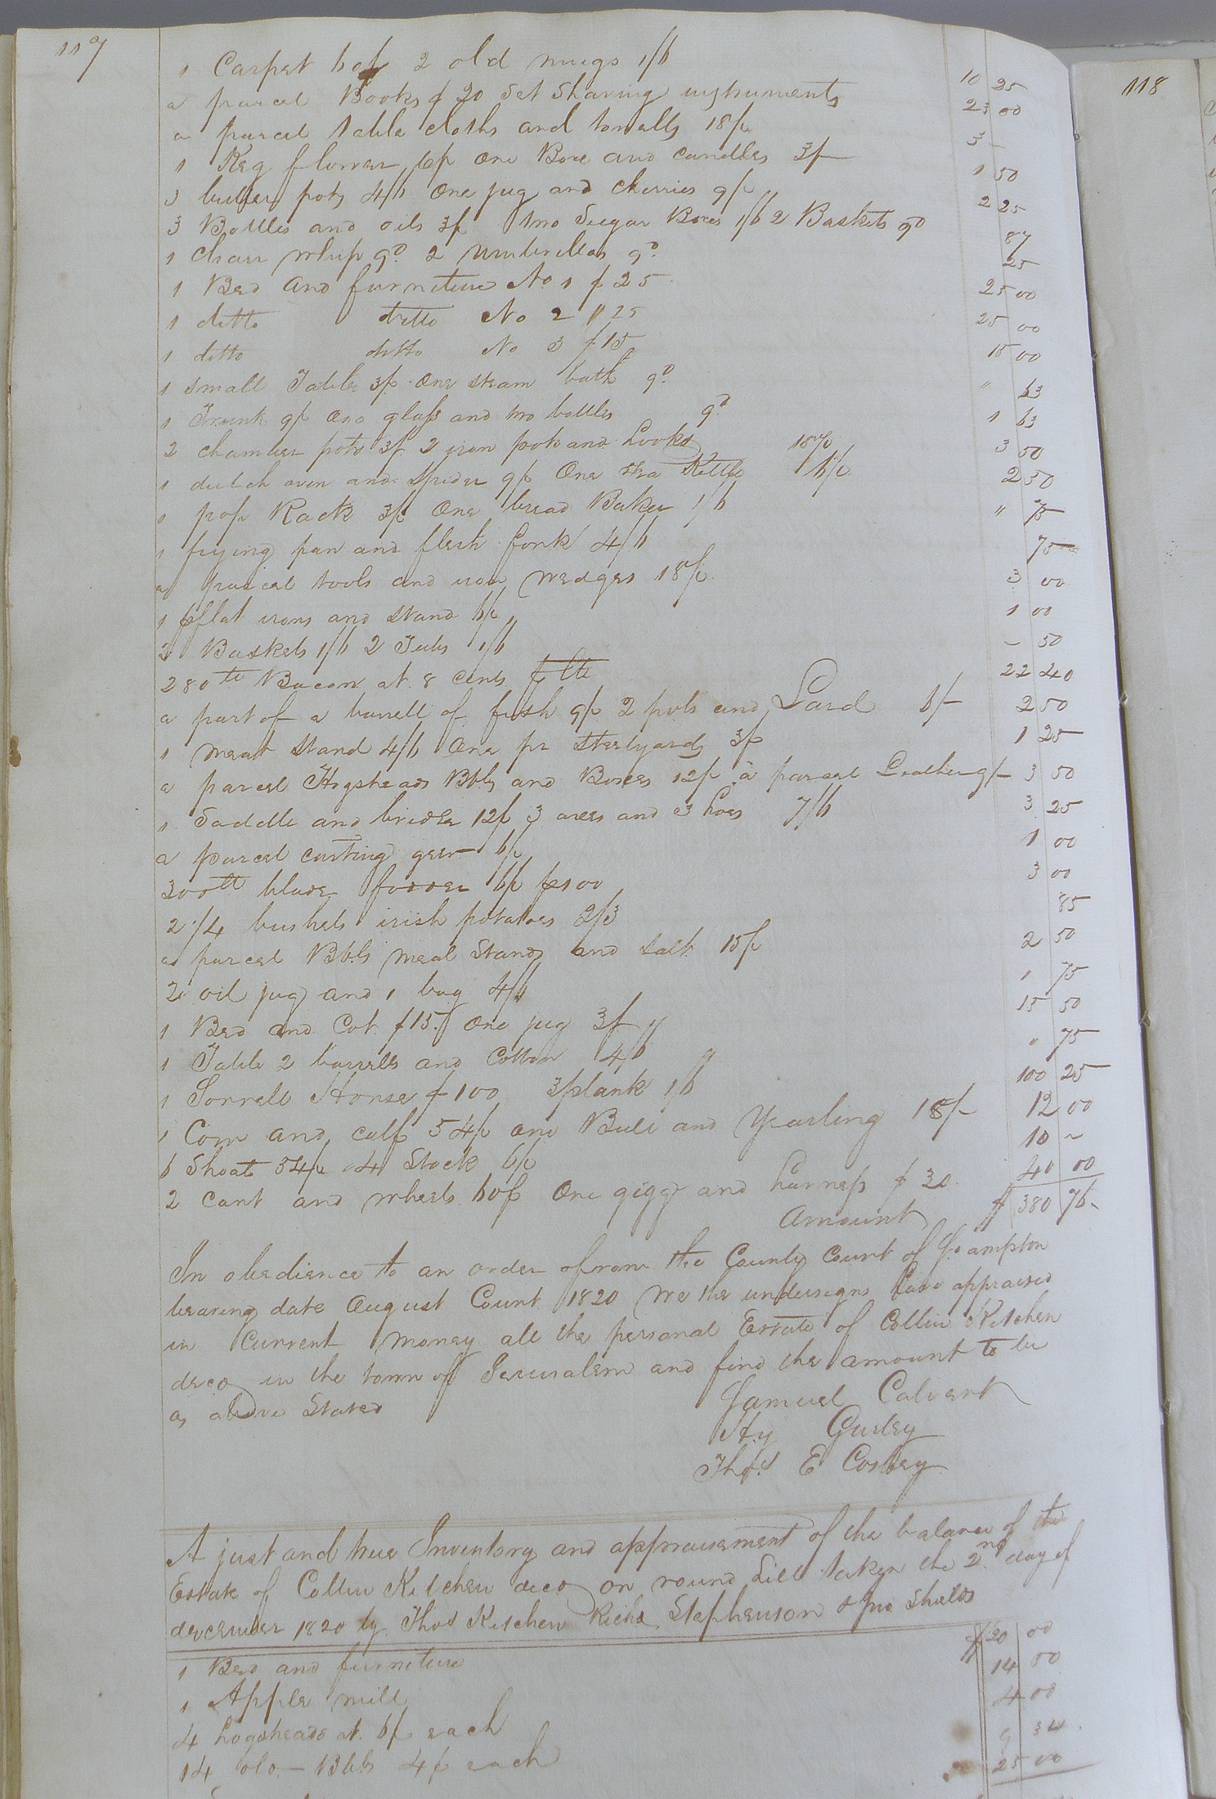 117
118
1 Carpet 60/ 2 old mugs 1/6 10 25
a parcel Books $20 Set Shaving instruments 23 00
a parcel table cloths and towells 18/ 3 –
1 Keg flower 6/ one Box and candles 3/ 1 50
3 butter pots 4/6 One jug and cherries 9/ 2 25
3 Bottles and oils 3/ two Sugar Boxes 1/6 2 Baskets 9d 87
1 Chair whip 9d 2 umbrellas 9d 25
1 Bed and furniture No 1 $25 25 00
1 ditto ditto No 2 $25 25 00
1 ditto ditto No 3 $15 15 00
1 small Table 3/ One steam bath 9d " 63
1 Trunk 9/ One glass and two bottles 9d 1 63
2 chamber pots 3/ 2 iron pots and hooks 18/ 3 50
1 dutch oven and spider 9/ One tea Kettle 6/ 2 50
1 Rack 3/ One bread Baker 1/6 " 75
1 frying pan and flesh fork 4/6 75
a parcel tools and iron wedges 18/ 3 00
1 flat irons and stand 6/ 1 00
2 Baskets 1/6 2 Tubs 1/6 – 50
280 lb Bacon at 8 cents lb 22 40
a part of a barrell of fish 9/ 2 pots and Lard 6/– 2 50
1 meat stand 4/6 One pr steelyards 3/ 1 25
a parcel Hogsheads Bbls and Boxes 12/ a parcel Leather 9/– 3 50
1 Saddle and bridle 12/ 3 axes and 3 hoes 7/6 3 25
a parcel carting geer 6/ 1 00
300 lb blade fodder 6/ 100 3 00
2 1/4 bushels irish potatoes 2/3 85
a parcel Bbls meal Stands and Salt 15/ 2 50
2 oil jug and 1 bag 4/6 1 75
1 Bed and Cot $15 One jug 3/ 15 50
1 Table 2 barrells and Cotton 4/6 " 75
1 Sorrell Horse $100 3 plank 1/6 100 25
1 Cow and calf 54/ one Bull and Yearling 18/– 12 00
6 Shoats 54/ Stock 6/ 10 –
2 Cart and wheels 60/ One gigg and harness $30 40 00
Amount $ 380 76
In obedience to an order of from the County Court of So ampton
bearing date August Court 1820 we the undersigns have appraised
in Current money all the personal Estate of Collin Kitchen
decd in the town of Jerusalem and find the amount to be
as above Stated
Samuel Calvert
Hy Gurley
Thos E Cosbey
A just and true Inventory and appraisement of the balance of the
Estate of Collin Kitchen decd on round hill taken the 2nd day of
december 1820 by Thos Kitchen Richd Stephenson & Jno Shields
1 Bed and furniture $20 00
1 Apple mill 14 00
4 hogsheads at 6/ each 4 00
14 old – Bbls 4/ each 9 34
25 00